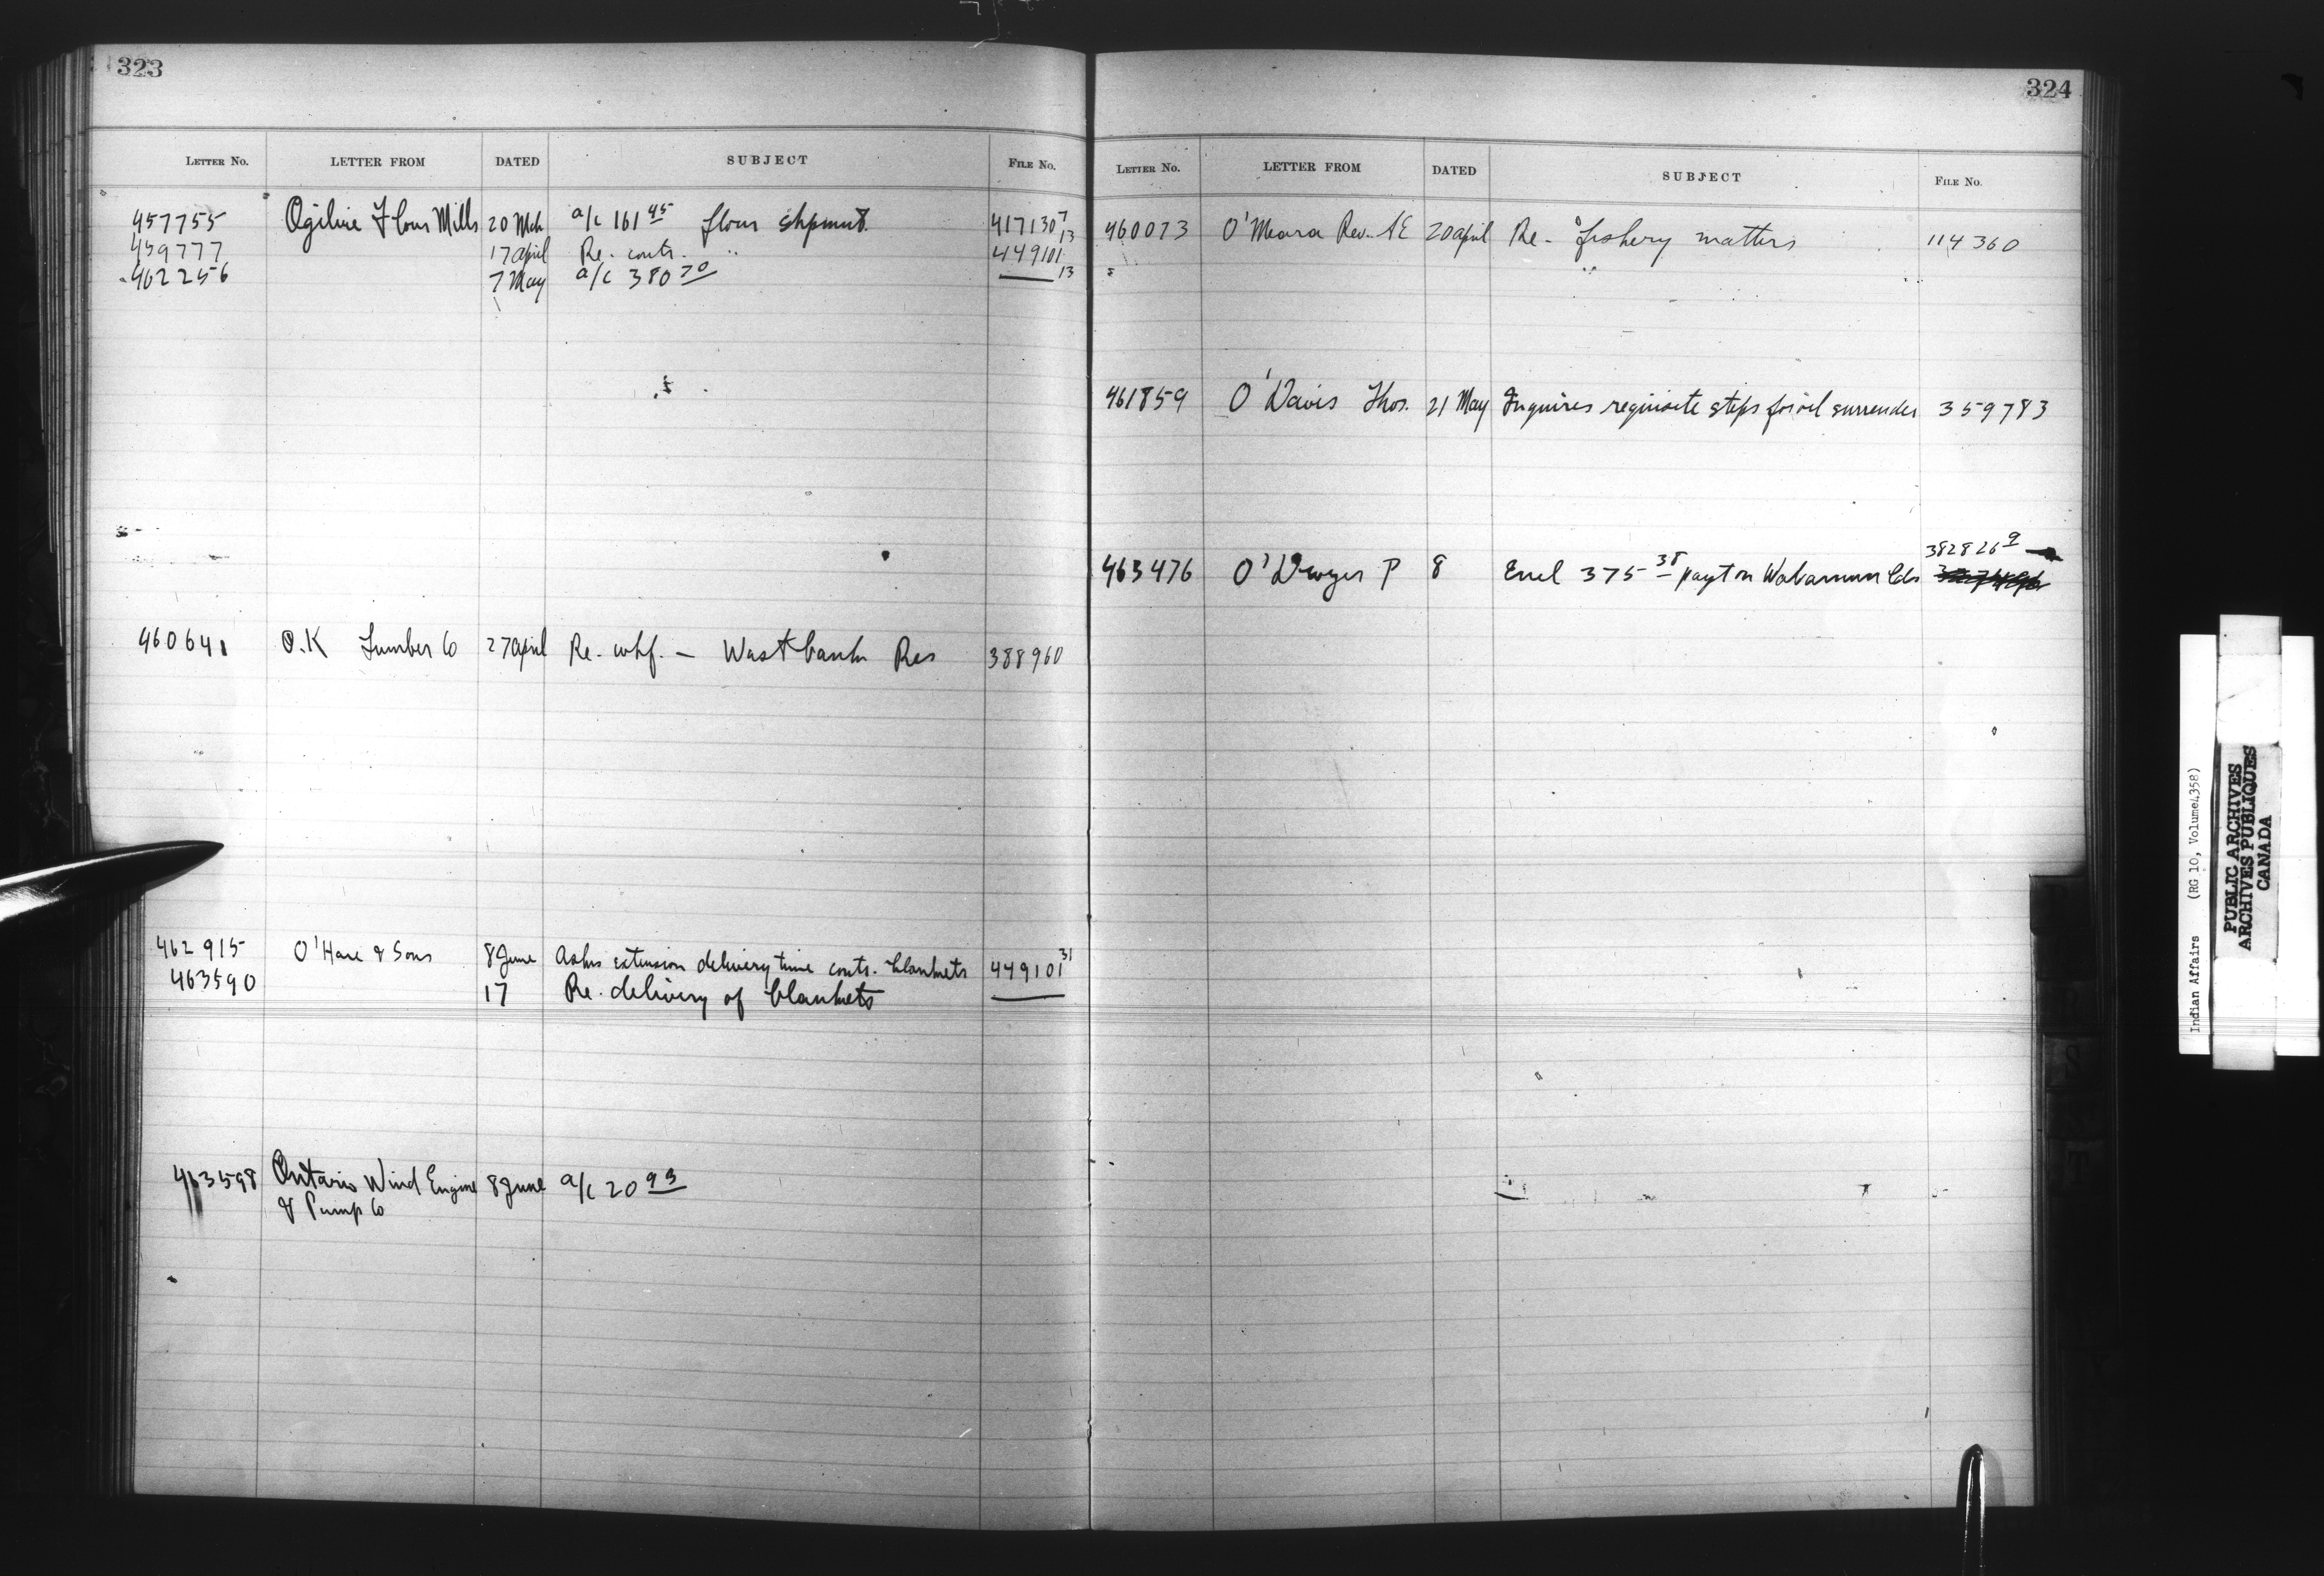 323
LETTER NO. LETTER FROM DATED SUBJECT FILE NO.
457755 Ogilvie Flour Mills 20 Mch a/c 161 45 flour shpmnt. 417130 7/13
459777 17 April Re. contr. " 449101
462256 7 May a/c 380 70 —— 13
460641 O.K Lumber Co 27 April Re. whf. — Westbank Res 388960
462915 O'Hare & Sons 8 June Asks extension delivery time contr. blankets 449101 31
463590 17 Re. delivery of blankets ——
463598 Ontario Wind Engine 8 June a/c 20 93
& Pump Co
324
LETTER NO. LETTER FROM DATED SUBJECT FILE NO.
460073 O'Meara Rev. AE 20 April Re - fishery matters 114360
461859 O'Davis Thos. 21 May Inquires requisite steps for oil surrender 359783
382826 9
463476 O'Dwyer P 8 Encl 375 38 payt on Wabamun lds
Indian Affairs (RG 10, Volume 4358)
PUBLIC ARCHIVES
ARCHIVES PUBLIQUES
CANADA